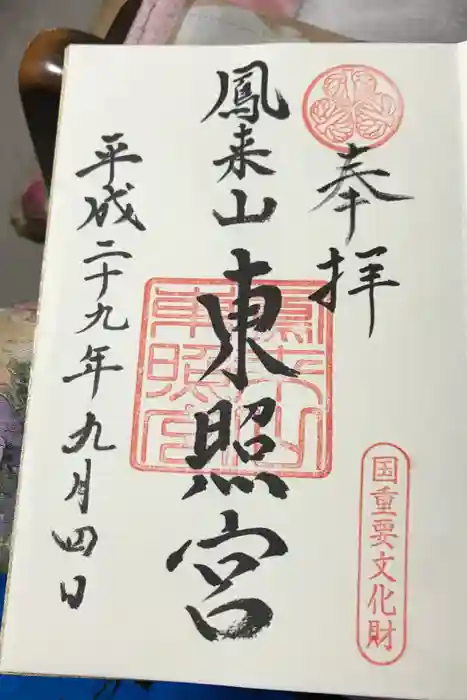 奉拝
国重要文化財
鳳来山東照宮
鳳来山
東照宮
平成二十九年九月四日